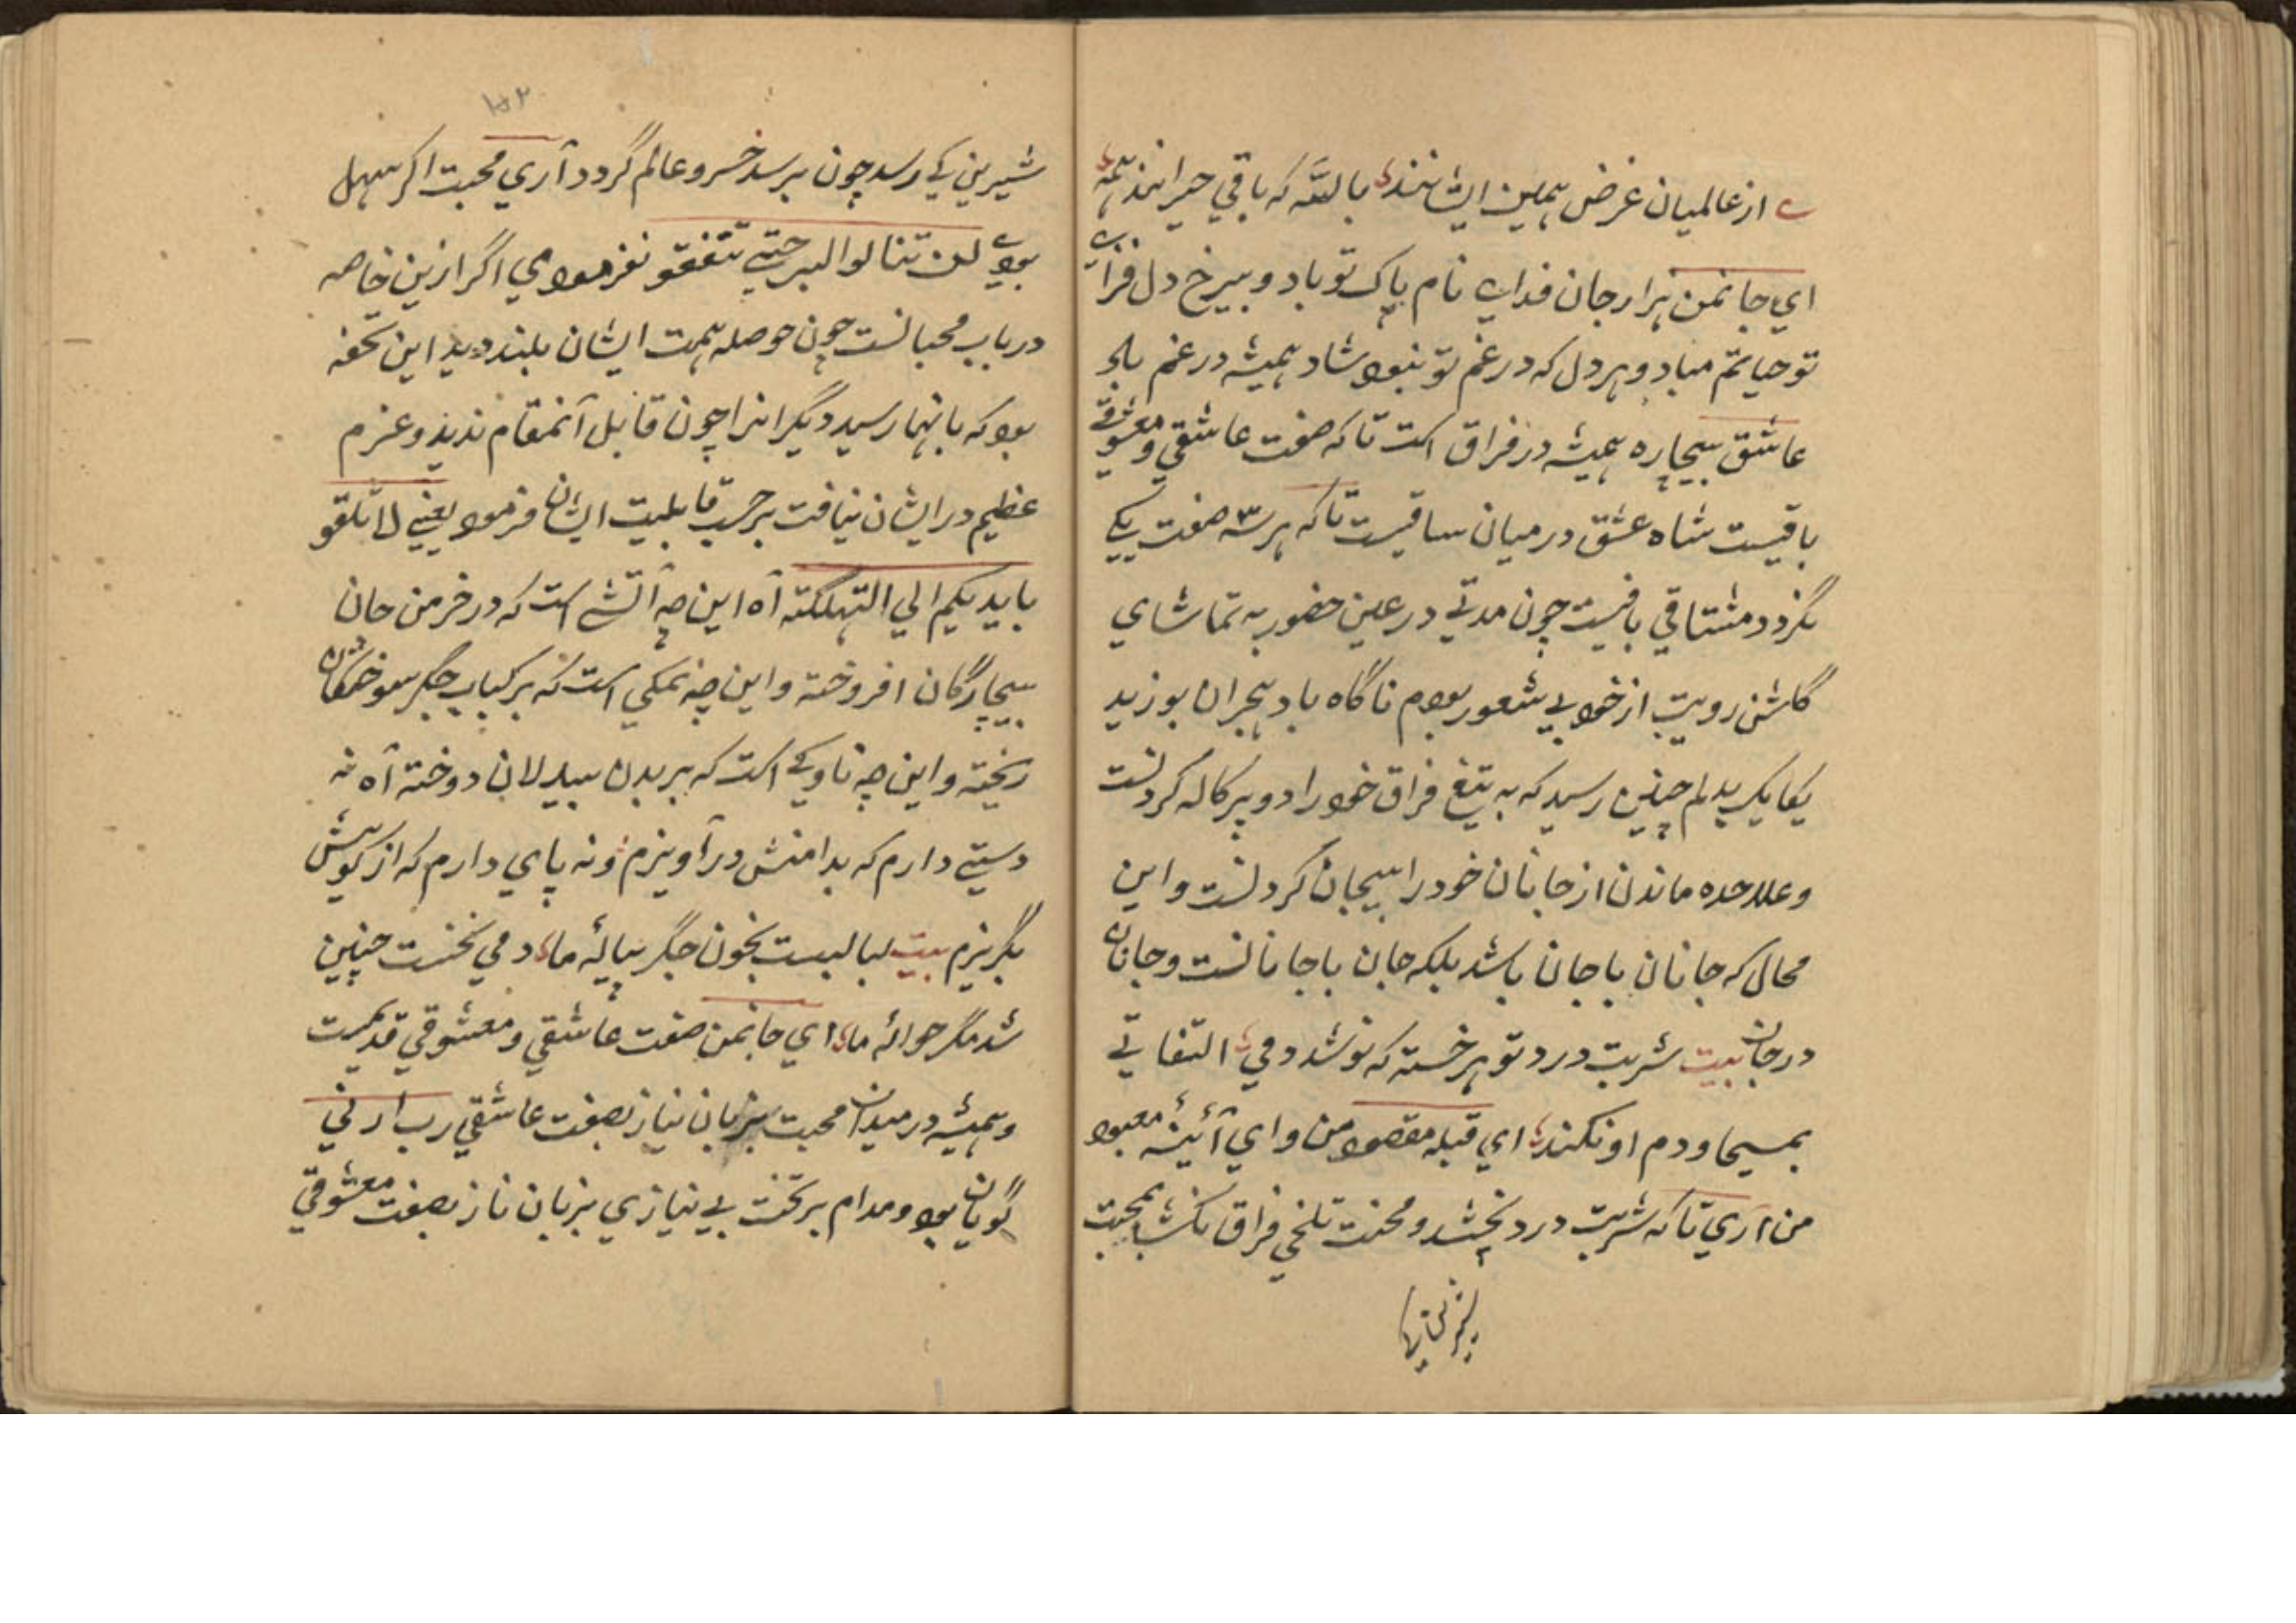 از عالمیان غرض همین ایشانند باللّه که باقی حیرانند همه
اي جانمن هزار جان فداے نام پاک تو باد و بیرخ دل فزاے
تو حیاتم مباد و هر دل که در غم تو نبود شاد همیشه در غم باد
عاشق بیچاره همیشه در فراق است تا که صفت عاشقي و معشوقے
باقیست شاه عشق درمیان ساقیست تا که هر سه صفت یکے
نگردد مشتاقي باقیست چون مدتے در عین حضور به تماشاي
گلشن رویت از خود بے شعور بودم ناگاه باد هجران بوزید
یکایک بدلم چنین رسید که به تیغ فراق خود را دو پرکاله کردنست
و علاحده ماندن از جانان خود را بیجان کردنست و این
محال که جانان با جان باشد بلکه جان با جانانست و جانان
در جان بیت شربت درد تو هر خسته که نوشد دمي التفاتے
بمسیحا و دم او نکند اي قبله مقصود من و اي آئینهٔ معبود
من آري تا که شربت درد نچشد و محنت تلخي فراق نکشد بمحبت
شیرین کے رسد چون برسد خسرو عالم گردد آري محبت اگر سهل
بودے لن تنالوا البر حتے تنفقو نفرمودي اگر ازین خاصه
در باب محبانست چون حوصله همت ایشان بلند دید این تحفه
بود که بانها رسید دیگرانرا چون قابل آنمقام ندید و عزم
عظیم در ایشان نیافت بر حسب قابلیت ایشان فرمود یعنے لا تلقو
بایدیکم الي التهلکته آه این چه آتشے است که در خرمن جان
بیچارگان افروخته و این چه نمکي است که بر کباب جگر سوختگان
ریخته و این چه ناوکے است که بر بدن بیدلان دوخته آه نه
دستے دارم که بدامنش در آویزم و نه پاي دارم که از کویش
بگریزم بیت لبالبست بخون جگر پیالهٔ ما دمي نخست چنین
شد مگر حوالهٔ ما اي جانمن صفت عاشقي و معشوقي قدیمست
و همیشه در میدان محبت بزبان نیاز بصفت عاشقي رب ارني
گویان بود و مدام بر تخت بے نیازي بزبان ناز بصفت معشوقي